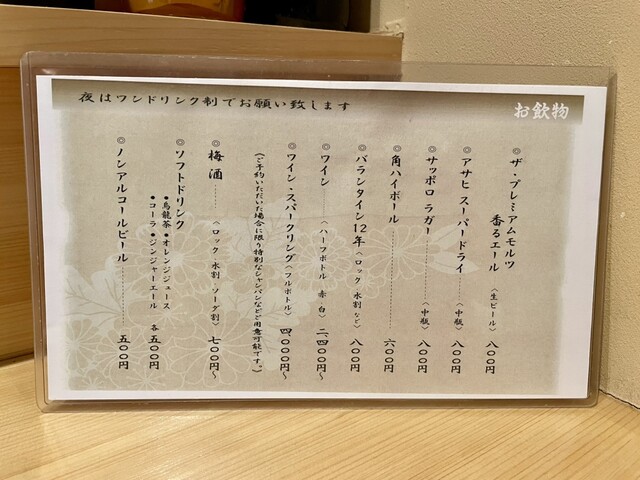 夜はワンドリンク制でお願い致します
お飲物
◎ザ・プレミアムモルツ
香るエール 〈生ビール〉 八〇〇円
◎アサヒ スーパードライ……〈中瓶〉 八〇〇円
◎サッポロ ラガー……〈中瓶〉 八〇〇円
◎角ハイボール…… 六〇〇円
◎バランタイン12年〈ロック・水割など〉 八〇〇円
◎ワイン……〈ハーフボトル 赤・白〉 二、四〇〇円〜
◎ワイン・スパークリング〈フルボトル〉 四、〇〇〇円〜
(ご予約いただいた場合に限り特別なシャンパンなどご用意可能です。)
◎梅酒……〈ロック・水割・ソーダ割〉 七〇〇円〜
◎ソフトドリンク
●烏龍茶 ●オレンジジュース
●コーラ ●ジンジャーエール 各 五〇〇円
◎ノンアルコールビール…… 五〇〇円